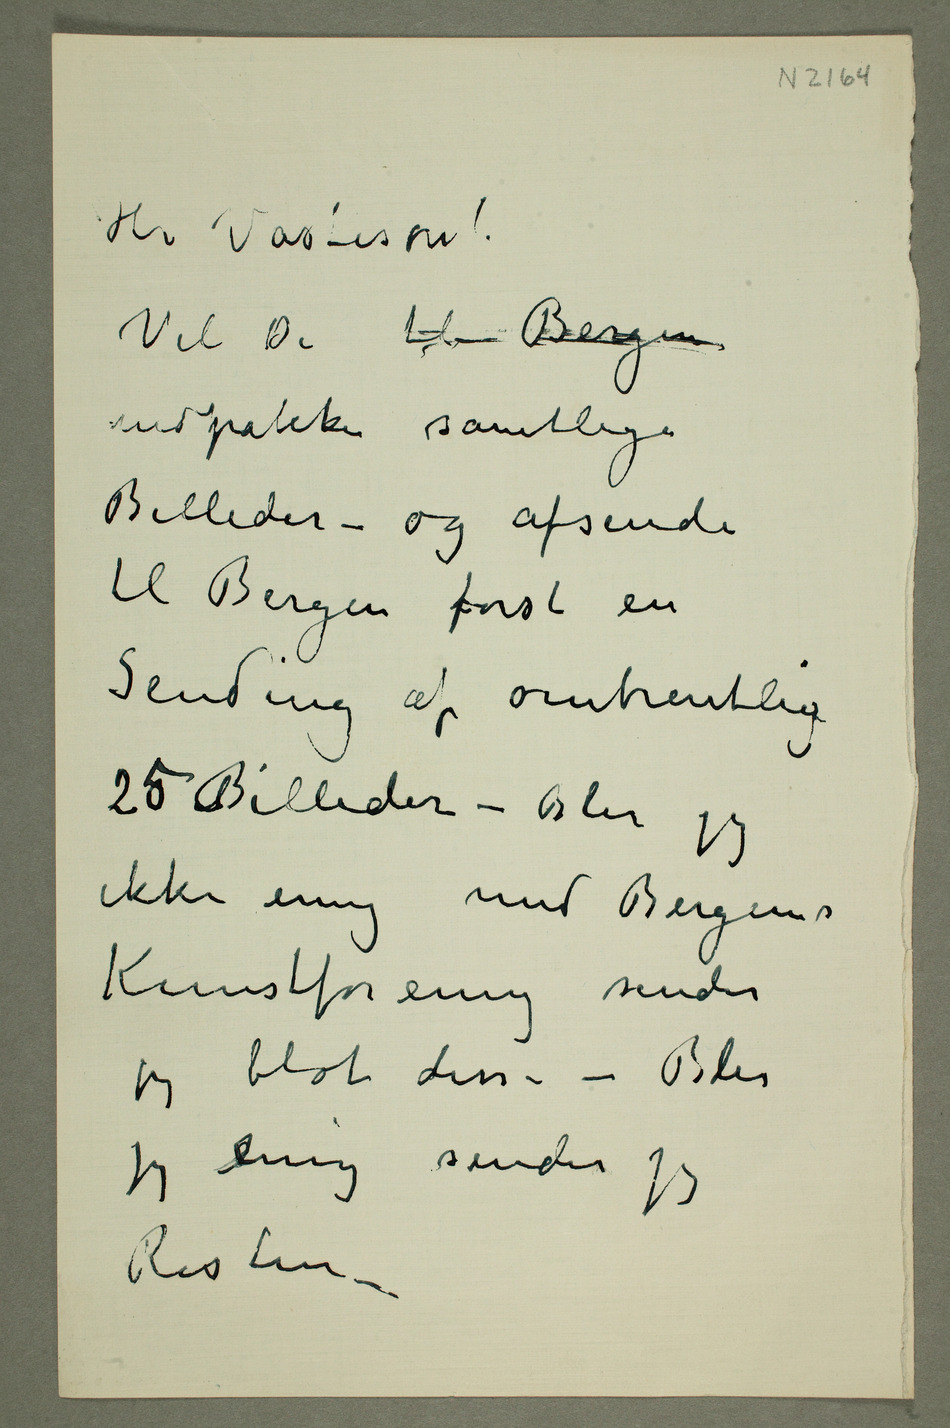 N 2164
Hr Vasieson!
Vil De til Bergen
nedpakke samtlige
Billeder – og afsende
til Bergen først en
Sending af omtrentlig
25 Billeder – Blir jeg
ikke enig med Bergens
Kunstforening sender
jeg blot disse – Blir
jeg enig sender jeg
Resten –